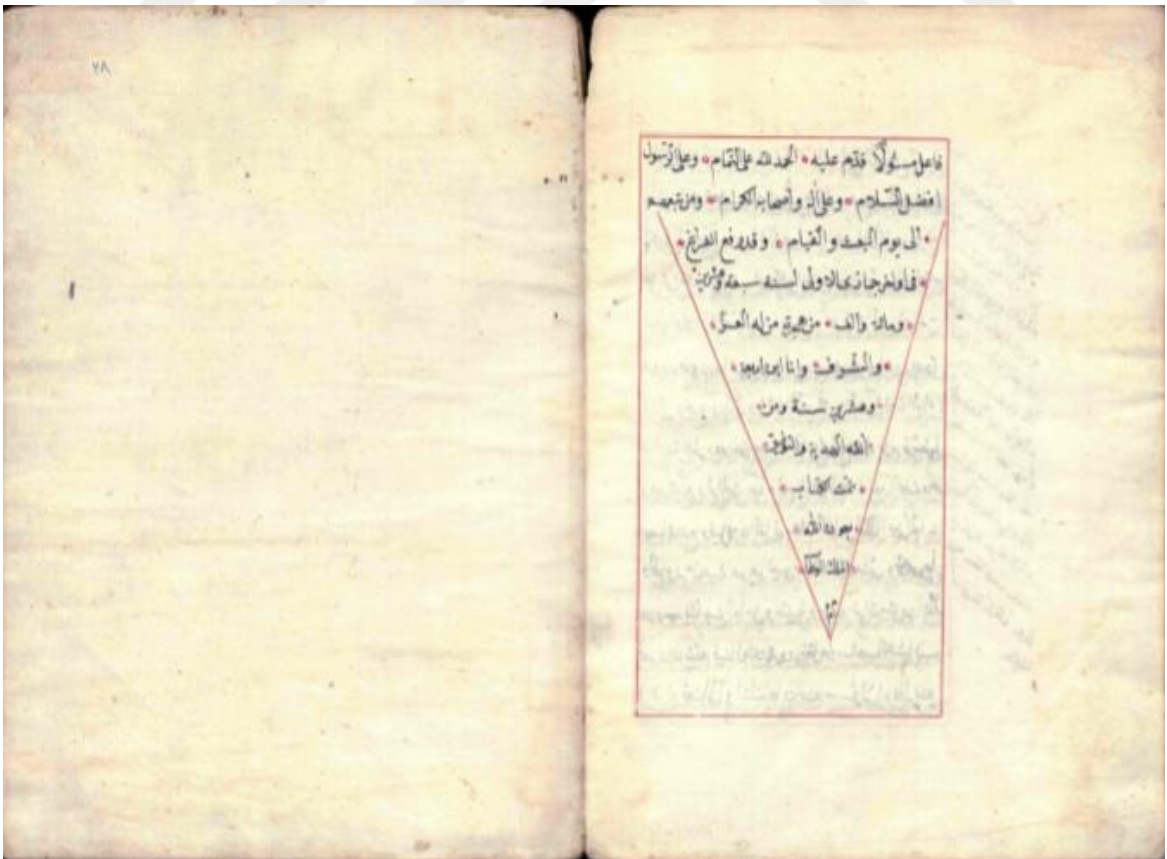 فاعل مسئولا قدم عليه • الحمد لله على التمام • وعلى الرسول
افضل السلام • وعلى آله وأصحابه الكرام • ومن تبعهم
• الى يوم البعث والقيام • وقد وقع الفراغ •
• في اواخر جمادى الاولى لسنة سبعة وعشرين
• ومائة والف • من هجرة من له العز •
• والشرف • وانا ابن اربعة •
• وعشرين سنة ومن •
الله الهداية والتوفيق
• تمت الكتاب •
• بعون الله •
الملك
تم
٢٨